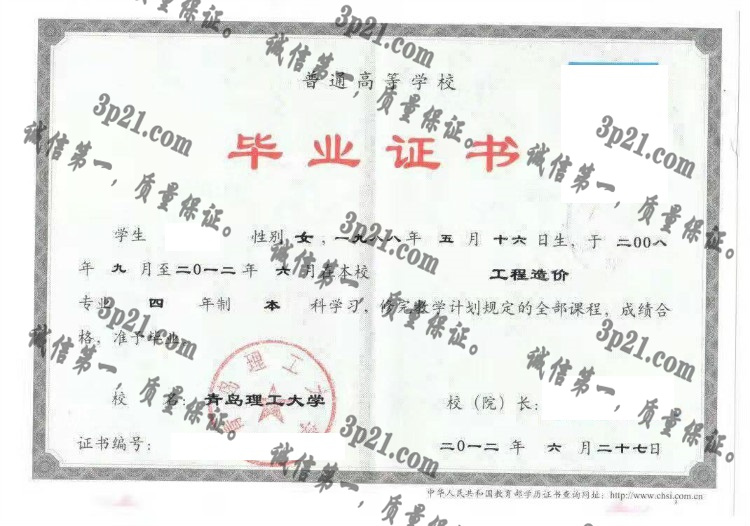 普通高等学校
毕业证书
学生 性别 女，一九八八年 五 月 十六日生，于 二00八
年 九 月至二0一二年 六 月在本校 工程造价
专业 四 年制 本 科学习，修完教学计划规定的全部课程，成绩合
格，准予毕业。
校 名：青岛理工大学 校（院）长：
证书编号： 二0一二年 六 月二十七日
中华人民共和国教育部学历证书查询网址：http://www.chsi.com.cn
青岛理工大学
质量保证。
3p21.com
诚信第一，质量保证。
3p21.com
诚信第一，质量保证。
3p21.com
诚信第一，质量保证。
3p21.com
诚信第一，质量保证。
3p21.com
诚信第一，质量保证。
3p21.com
诚信第一，质量保证。
3p21.com
诚信第一，质量保证。